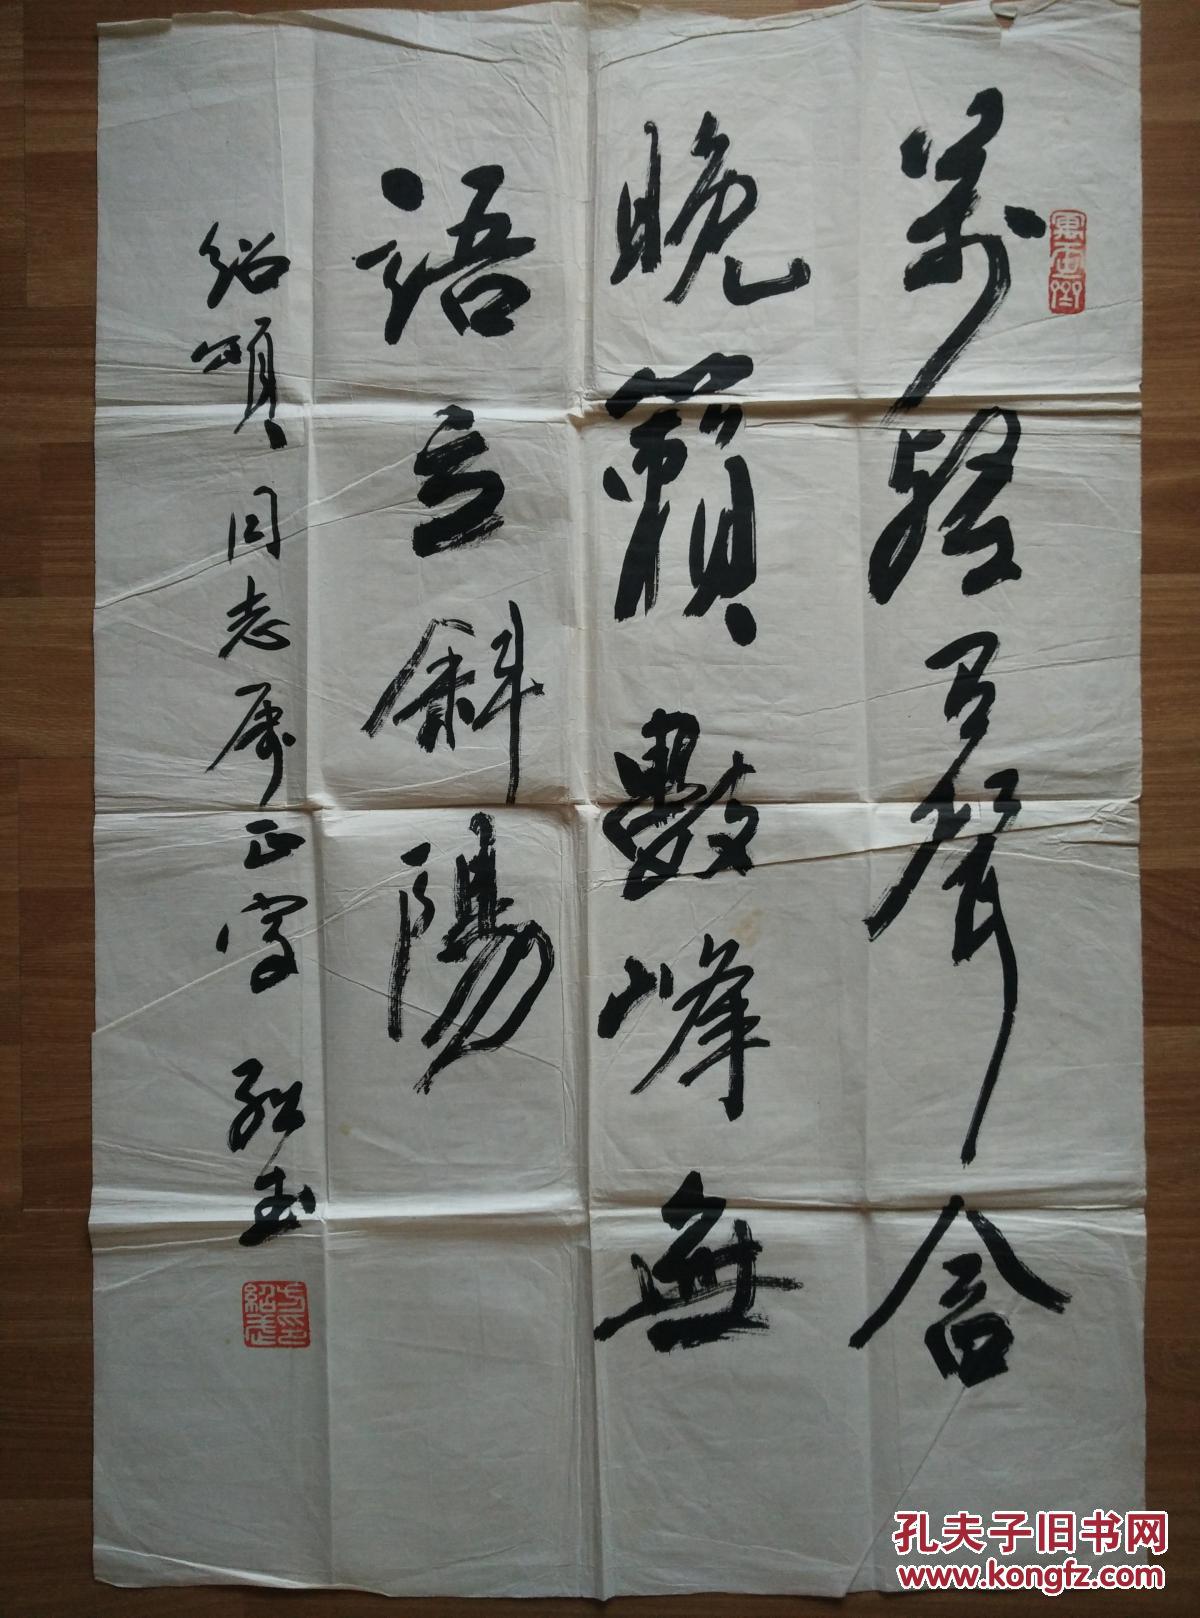 萬壑有聲含
晚籟數峰無
語立斜陽
紹頌同志屬正字 弘玉
孔夫子旧书网
www.kongfz.com